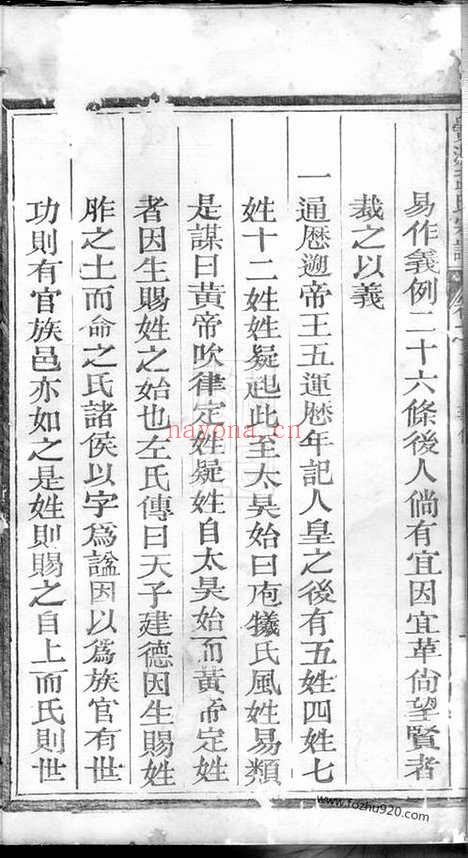 易作義例二十六條後人倘有宜因宜革尙望賢者
裁之以義
一通曆遡帝王五運曆年記人皇之後有五姓四姓七
姓十二姓姓疑起此至太昊始曰庖犧氏風姓易類
是謀曰黃帝吹律定姓疑姓自太昊始而黃帝定姓
者因生賜姓之始也左氏傳曰天子建德因生賜姓
胙之土而命之氏諸侯以字爲諡因以爲族官有世
功則有官族邑亦如之是姓則賜之自上而氏則世
nayona.cn
www.fozhu920.com